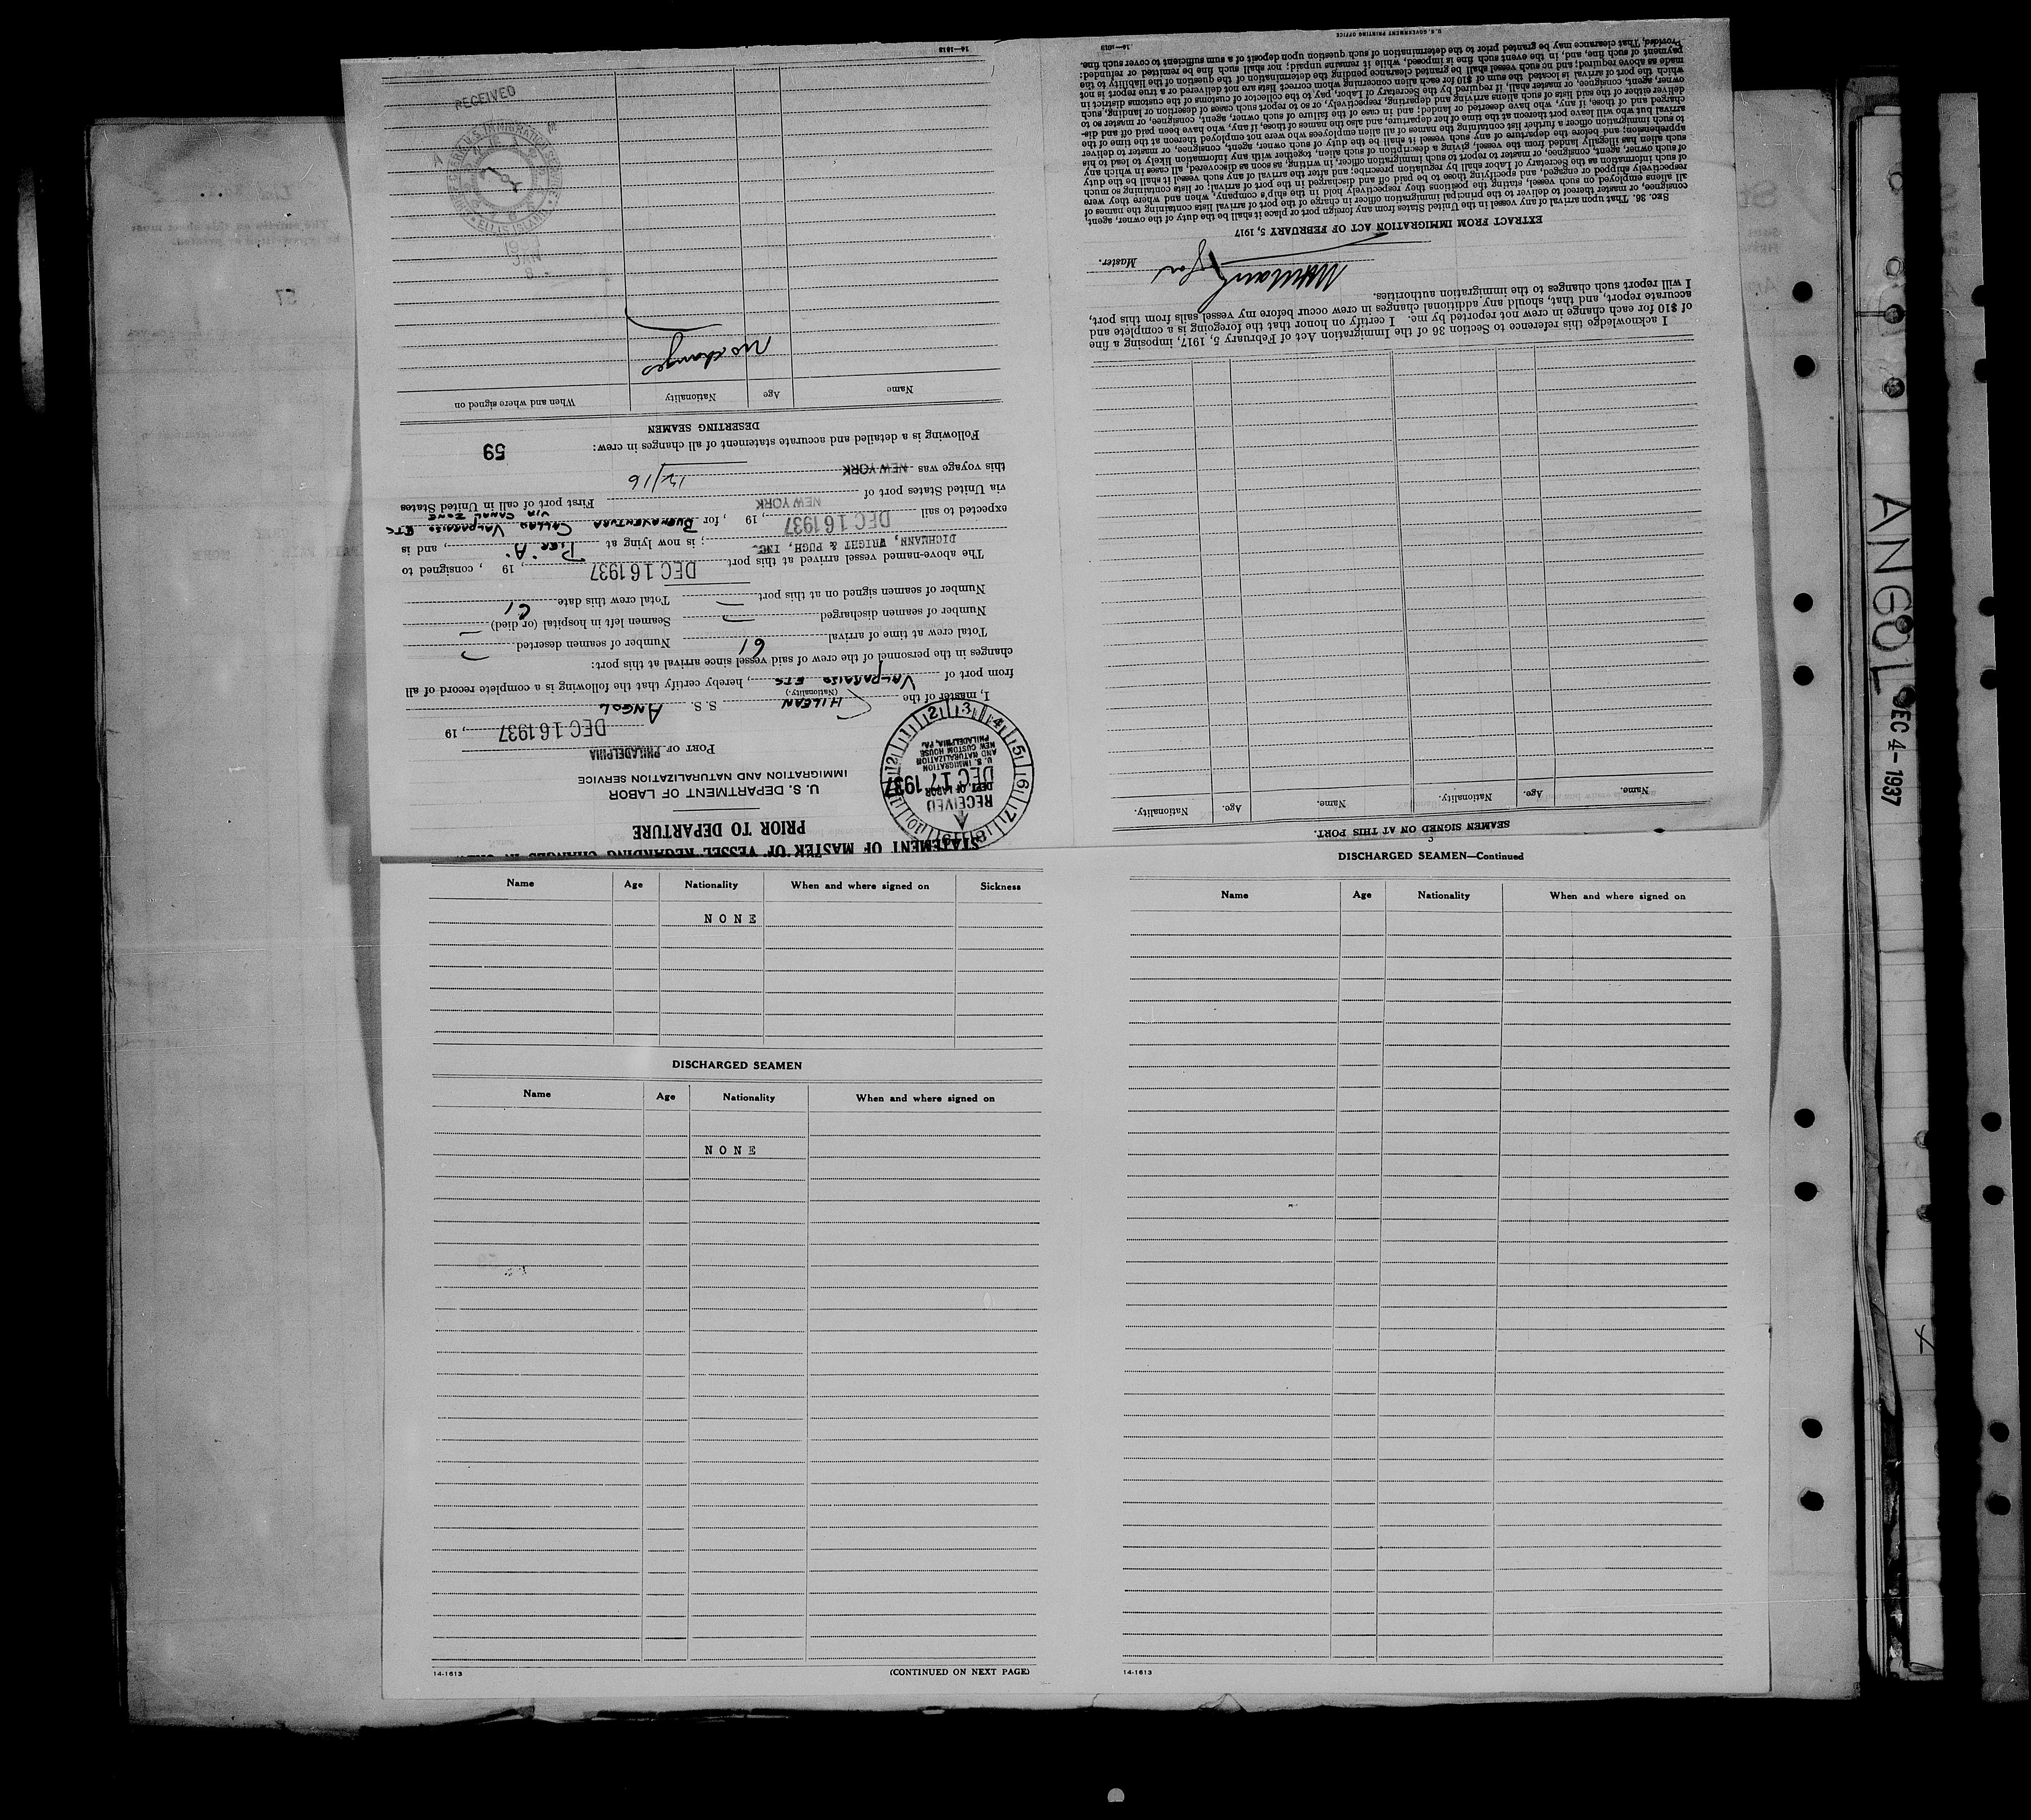 STATEMENT OF MASTER OF VESSEL REGARDING CHANGES IN
PRIOR TO DEPARTURE
U. S. DEPARTMENT OF LABOR
IMMIGRATION AND NATURALIZATION SERVICE
RECEIVED
DEPT. OF LABOR
DEC 17 1937
U. S. IMMIGRATION
AND NATURALIZATION
NEW CUSTOM HOUSE
PHILADELPHIA, PA.
PORT OF PHILADELPHIA
DEC 16 1937, 19
I, master of the CHILEAN S. S. ANGOL
(Nationality.)
from port of VALPARAISO ETC, hereby certify that the following is a complete record of all
changes in the personnel of the crew of said vessel since arrival at this port:
Total crew at time of arrival 61 Number of seamen deserted —
Number of seamen discharged — Seamen left in hospital (or died) —
Number of seamen signed on at this port — Total crew this date 61
The above-named vessel arrived at this port DEC 16 1937, 19 , consigned to
DICHMANN, WRIGHT & PUGH, INC.; is now lying at PIER "A", and is
expected to sail DEC 16 1937, 19 , for BUENAVENTURA CALLAO VALPARAISO ETC
VIA CANAL ZONE
via United States port of NEW YORK First port of call in United States
this voyage was NEW YORK 12/16
Following is a detailed and accurate statement of all changes in crew: 59
DESERTING SEAMEN
Name Age Nationality When and where signed on
No changes
8
JAN
1938
ELLIS ISLAND
RECEIVED
16—1613
SEAMEN SIGNED ON AT THIS PORT.
Name. Age. Nationality. Name. Age. Nationality.
I acknowledge this reference to Section 36 of the Immigration Act of February 5, 1917, imposing a fine
of $10 for each change in crew not reported by me. I certify on honor that the foregoing is a complete and
accurate report, and that, should any additional changes in crew occur before my vessel sails from this port,
I will report such changes to the immigration authorities.
for Master.
EXTRACT FROM IMMIGRATION ACT OF FEBRUARY 5, 1917
SEC. 36. That upon arrival of any vessel in the United States from any foreign port or place it shall be the duty of the owner, agent,
consignee, or master thereof to deliver to the principal immigration officer in charge of the port of arrival lists containing the names of
all aliens employed on such vessel, stating the positions they respectively hold in the ship's company, when and where they were
respectively shipped or engaged, and specifying those to be paid off and discharged in the port of arrival; or lists containing so much
of such information as the Secretary of Labor shall by regulation prescribe; and after the arrival of any such vessel it shall be the duty
of such owner, agent, consignee, or master to report to such immigration officer, in writing, as soon as discovered, all cases in which any
such alien has illegally landed from the vessel, giving a description of such alien, together with any information likely to lead to his
apprehension; and before the departure of any such vessel it shall be the duty of such owner, agent, consignee, or master to deliver
to such immigration officer a further list containing the names of all alien employees who were not employed thereon at the time of the
arrival but who will leave port thereon at the time of her departure, and also the names of those, if any, who have been paid off and dis-
charged and of those, if any, who have deserted or landed; and in case of the failure of such owner, agent, consignee, or master so to
deliver either of the said lists of such aliens arriving and departing, respectively, or so to report such cases of desertion or landing, such
owner, agent, consignee, or master shall, if required by the Secretary of Labor, pay to the collector of customs of the customs district in
which the port of arrival is located the sum of $10 for each alien concerning whom correct lists are not delivered or a true report is not
made as above required; and no such vessel shall be granted clearance pending the determination of the question of the liability to the
payment of such fine, and, in the event such fine is imposed, while it remains unpaid; nor shall such fine be remitted or refunded:
Provided, That clearance may be granted prior to the determination of such question upon deposit of a sum sufficient to cover such fine.
16—1613 U. S. GOVERNMENT PRINTING OFFICE
Name Age Nationality When and where signed on Sickness
NONE
DISCHARGED SEAMEN
Name Age Nationality When and where signed on
NONE
14-1613 (CONTINUED ON NEXT PAGE)
DISCHARGED SEAMEN—Continued
Name Age Nationality When and where signed on
14-1613
ANGOL
DEC 4- 1937
57